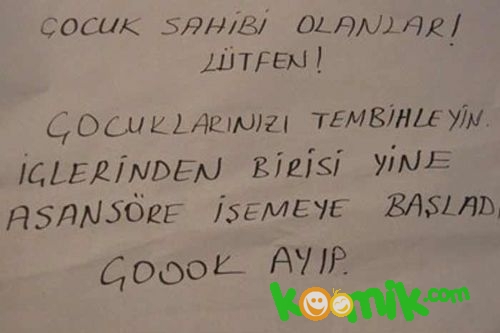 ÇOCUK SAHİBİ OLANLAR!
LÜTFEN!
ÇOCUKLARINIZI TEMBİHLEYİN.
İÇLERİNDEN BİRİSİ YİNE
ASANSÖRE İŞEMEYE BAŞLADI
ÇOOOK AYIP.
koomik.com